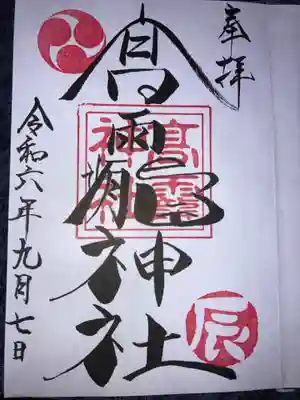 奉拝
高龗神社
高龗
神社
辰
令和六年九月七日